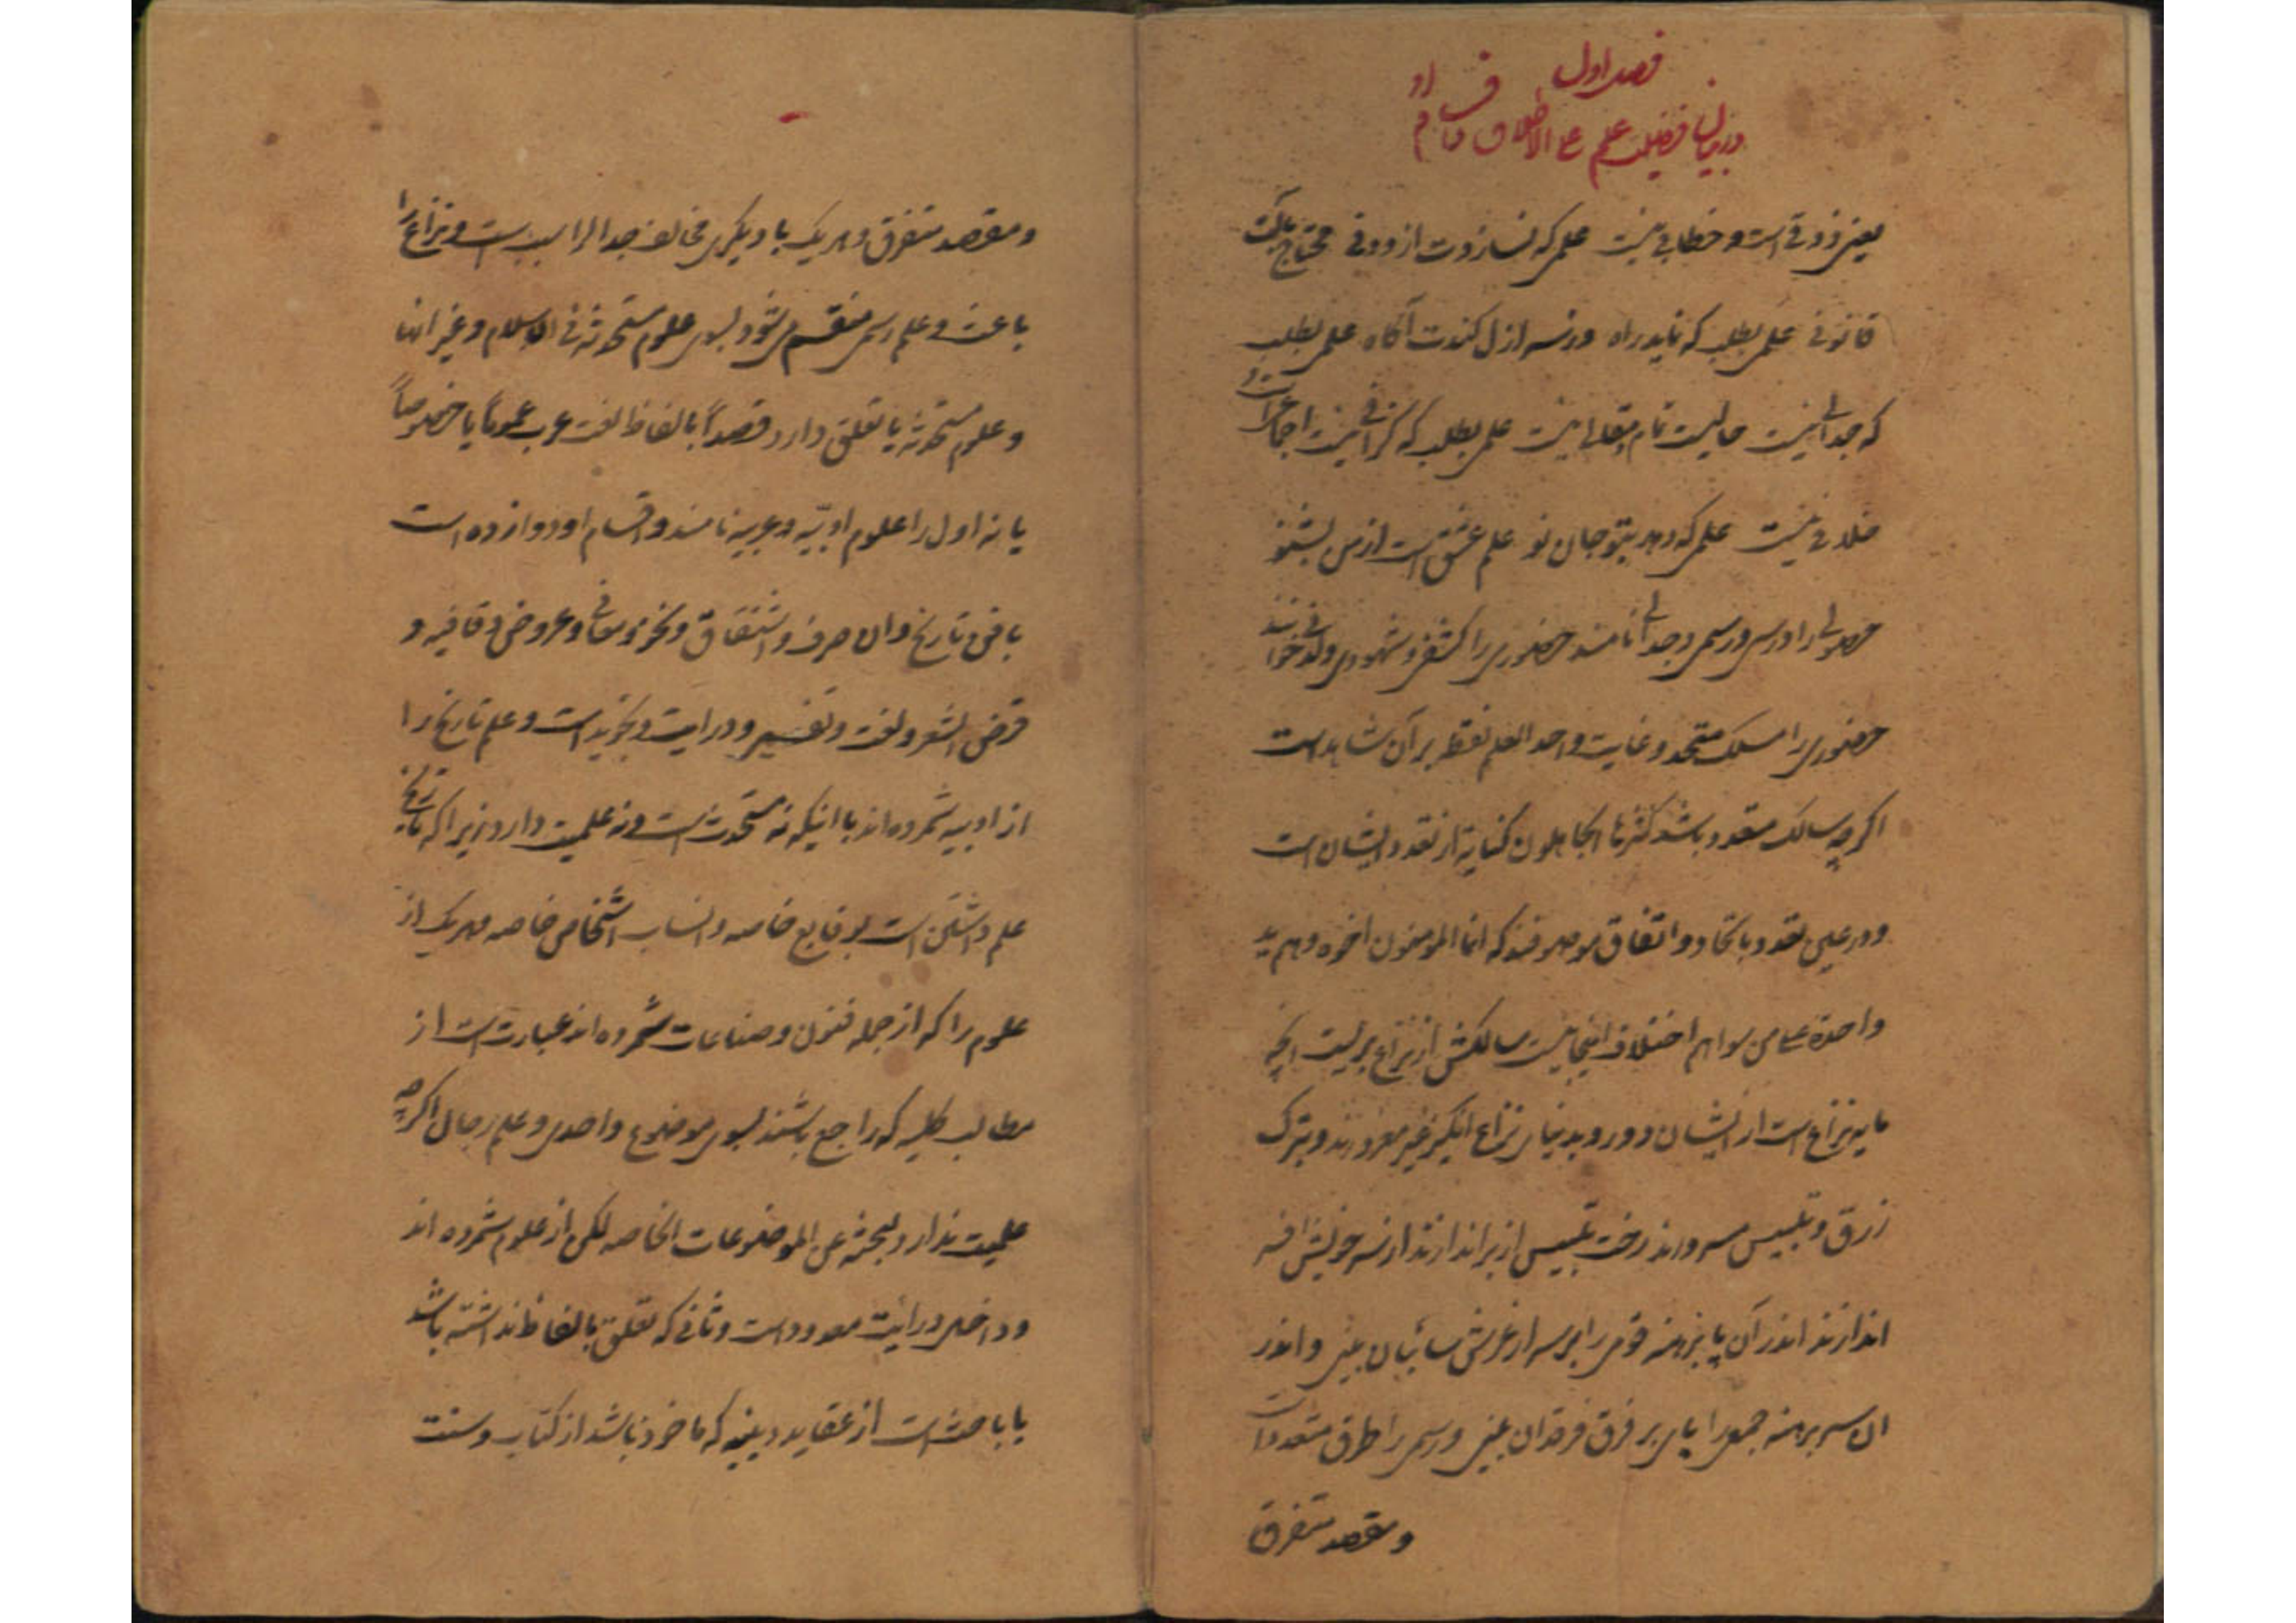 فصل اول
در بیان فضیلت علم علی الاطلاق و اقسام او
یعنی ذوقی است و خطابی نیست علمی که نسازدت ازو دوفی محتاج بآلت
قانونی علمی بطلب که نماید راه وز سر ازل کندت آگاه علمی بطلب
که جدالی نیست حالیست تمام و قالی نیست علمی بطلب که گزافی نیست اجماعیست و
خلافی نیست علمی که دهد بتو جان نو علم عشق است از من بشنو
حصولی را درسی و رسمی و جدالی نامند حضوری را کشفی و شهودی و لدنی خوانند
حضوری را مسلک متحد و غایت واحد العلم نقطة بر آن شاهد است
اگرچه سالک متعدد باشد کثرها الجاهلون کنایه از تعدد ایشان است
و در عین تعدد باتحاد و اتفاق موصوفند که انما المومنون اخوه و هم ید
واحدة علی من سواهم اختلاف اینجا نیست سالکش از نزاع بریست آنچه
مایه نزاع است از ایشان دور و بدنیای نزاع انگیز غیر مغرورند و بترک
زرق و تلبیس مسرورند رخت تلبیس از بر اندازند از سر خویش افسر
اندازند اندر آن پا برهنه قومی را بر سر از عرش سائبان بینی و اندر
ان سر برهنه جمعی را پای بر فرق فرقدان بینی و رسمی را طرق متعدد است
و مقصد متفرق
و مقصد متفرق و هر یک با دیگری مخالف جدال را سبب است و نزاع را
باعث و علم رسمی منقسم میشود بسوی علوم مستحدثه فی الاسلام و غیر انها
و علوم مستحدثه یا تعلق دارد قصداً بالفاظ لغت عرب عموماً یا خصوصاً
یا نه اول را علوم ادبیّه و عربیه نامند و اقسام او دوازده است
با فن تاریخ و ان صرف و اشتقاق و نحو و معانی و عروض و قافیه و
قرض الشعر و لغت و تفسیر و درایت و تجوید است و علم تاریخ را
از ادبیه شمرده اند با اینکه نه مستحدث است و نه علمیت دارد زیرا که تاریخ
علم داشتن است بوقایع خاصه و انساب اشخاص خاصه و هر یک از
علوم را که از جمله فنون و صناعات شمرده اند عبارت است از
مطالب کلیه که راجع باشند بسوی موضوع واحدی و علم رجال اگرچه
علمیت ندارد لبحثه عن الموضوعات الخاصه لکن از علوم شمرده اند
و داخل درایت معدود است و ثانی که تعلق بالفاظ نداشته باشد
یا باحث است از عقاید دینیه که ماخوذ باشد از کتاب و سنت